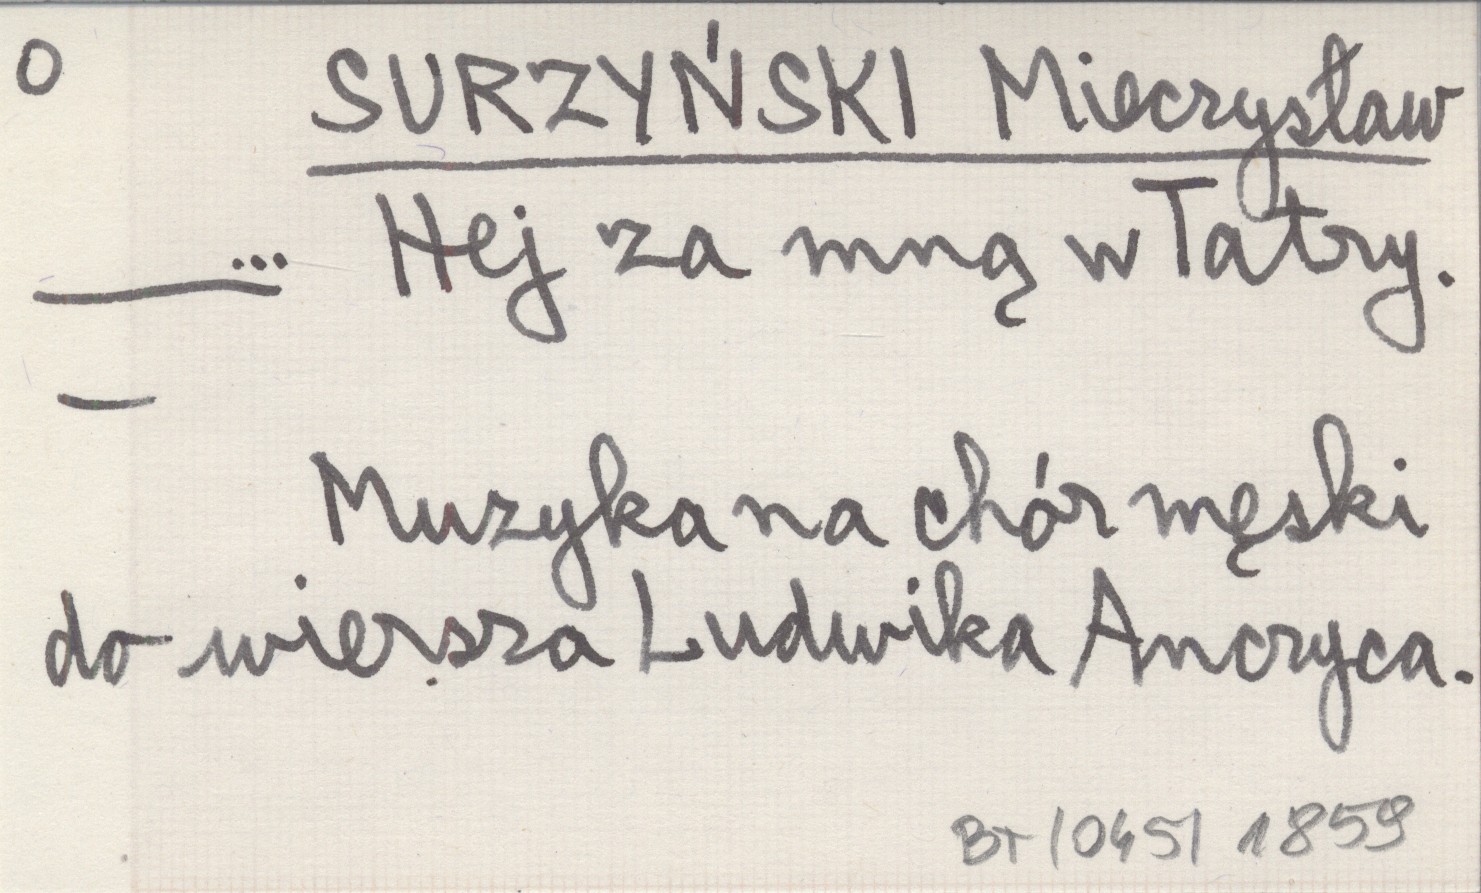 O SURZYŃSKI Mieczysław
... Hej za mną w Tatry.
—
Muzyka na chór męski
do wiersza Ludwika Anczyca.
BT/045/ 1859